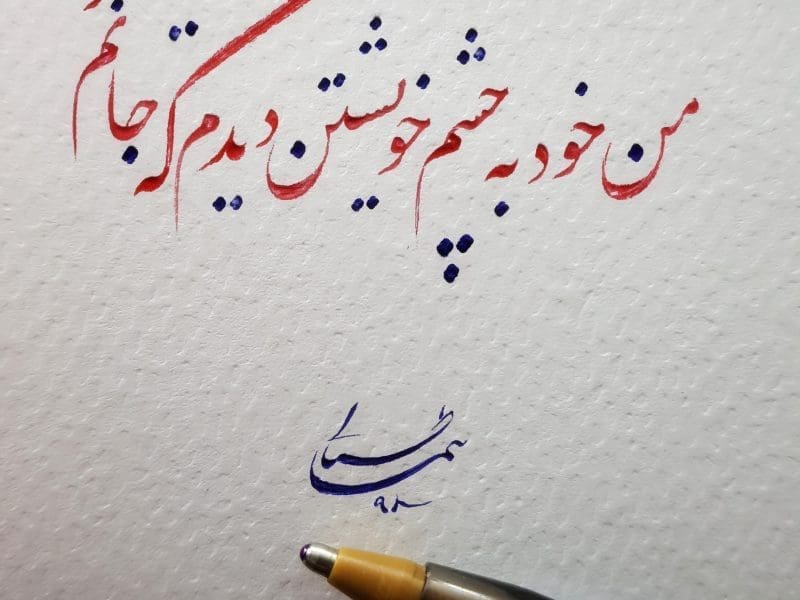 من خود به چشم خویشتن دیدم که جانم